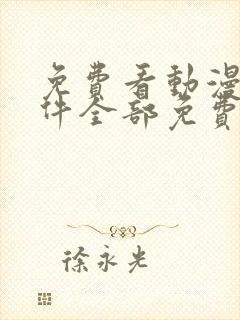 免費看動漫
件全部免費
徐永光